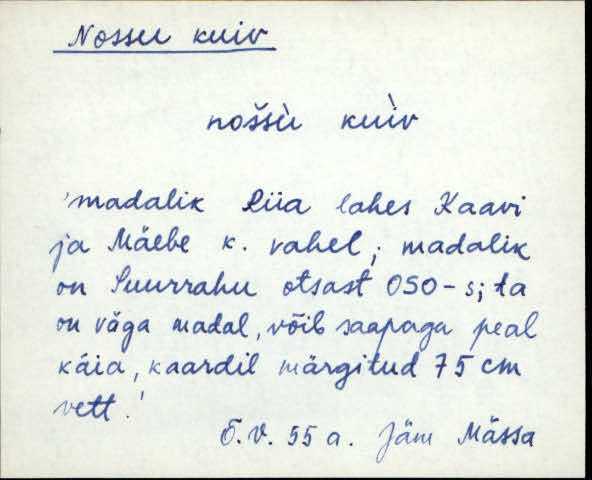 Nossu kuiv
noššù kuìv
'madalik Liia lahes Kaavi
ja Mäebe k. vahel; madalik
on Suurrahu otsast OSO-s; ta
on väga madal, võib saapaga peal
käia, kaardil märgitud 75 cm
vett.'
Õ.V. 55 a. Jäm Mässa